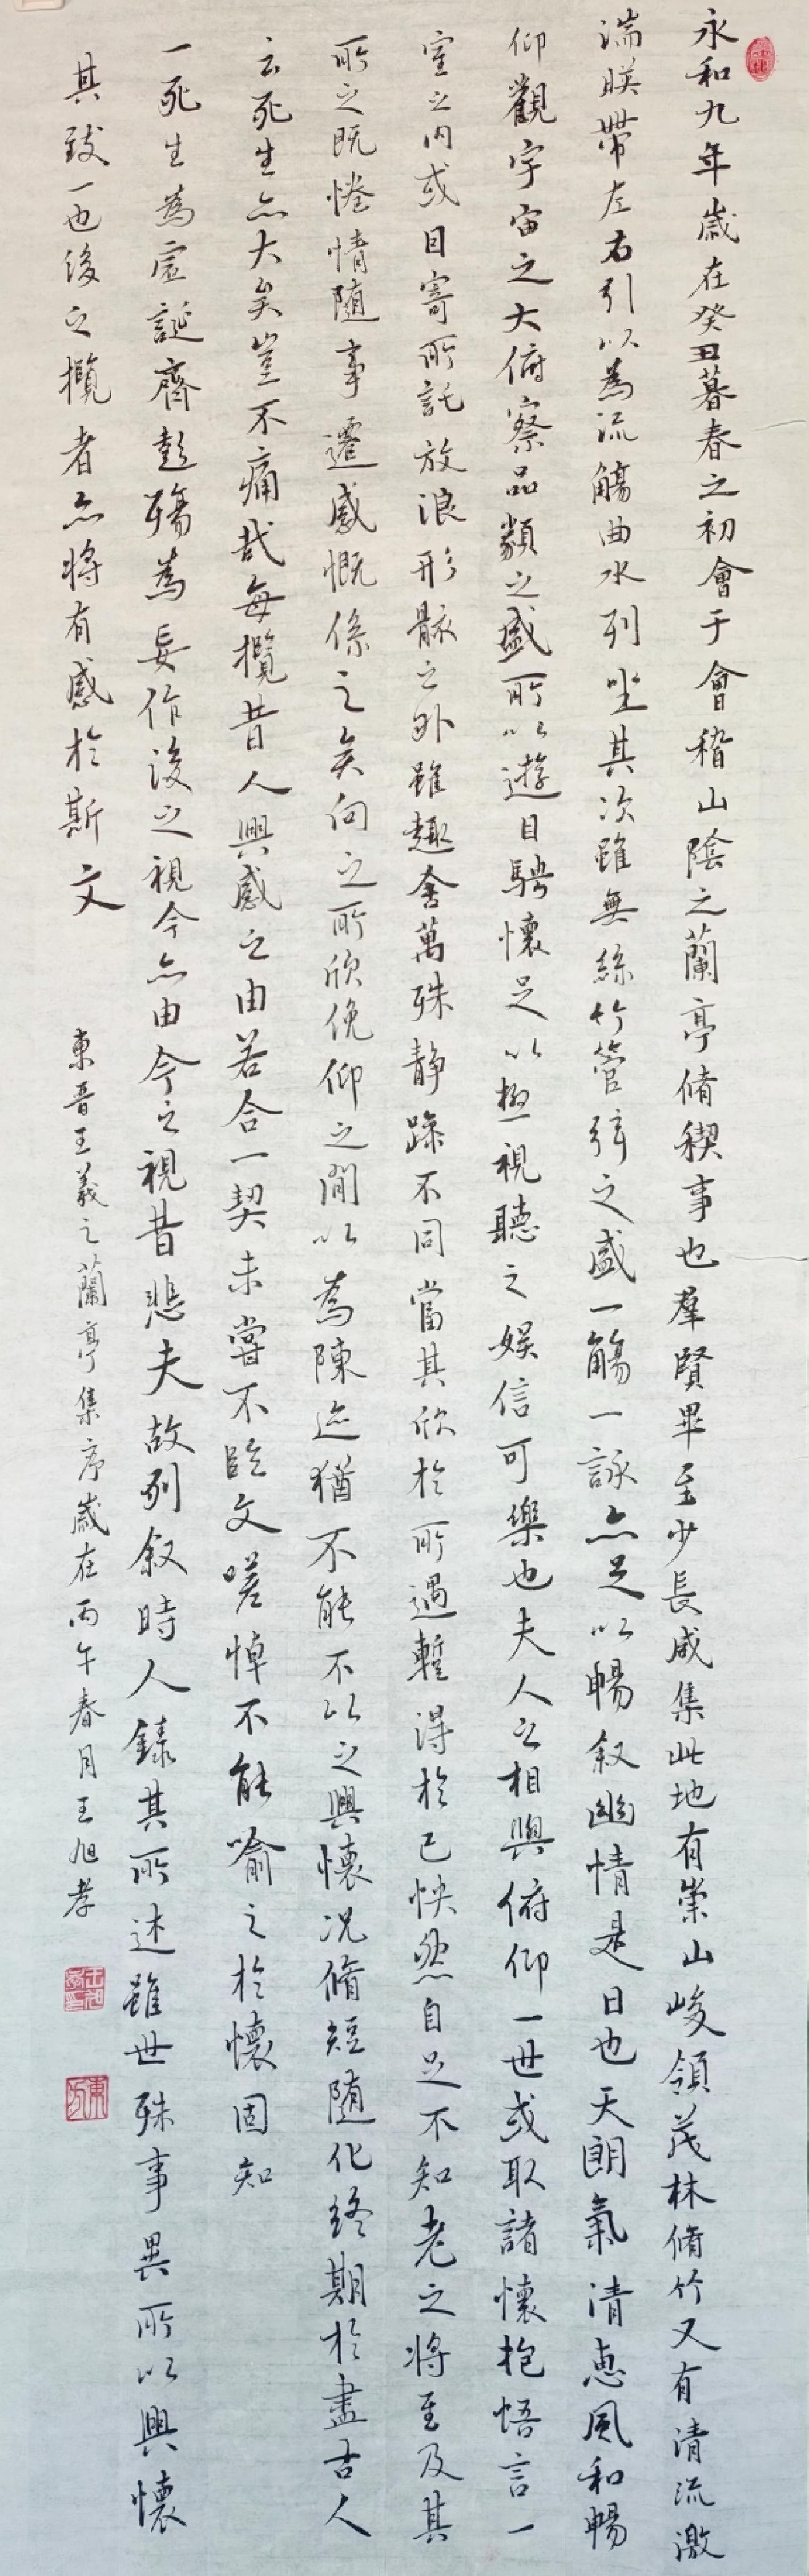 永和九年歲在癸丑暮春之初會于會稽山陰之蘭亭脩稧事也羣賢畢至少長咸集此地有崇山峻領茂林脩竹又有清流激
湍暎帶左右引以為流觴曲水列坐其次雖無絲竹管弦之盛一觴一詠亦足以暢叙幽情是日也天朗氣清惠風和暢
仰觀宇宙之大俯察品類之盛所以遊目騁懷足以極視聽之娛信可樂也夫人之相與俯仰一世或取諸懷抱悟言一
室之内或因寄所託放浪形骸之外雖趣舍萬殊静躁不同當其欣於所遇暫得於己怏然自足不知老之將至及其
所之既惓情隨事遷感慨係之矣向之所欣俛仰之閒以為陳迹猶不能不以之興懷況脩短隨化終期於盡古人
云死生亦大矣豈不痛哉每攬昔人興感之由若合一契未嘗不臨文嗟悼不能喻之於懷固知
一死生為虛誕齊彭殤為妄作後之視今亦由今之視昔悲夫故列叙時人錄其所述雖世殊事異所以興懷
其致一也後之攬者亦將有感於斯文
東晋王羲之蘭亭集序歲在丙午春月王旭孝